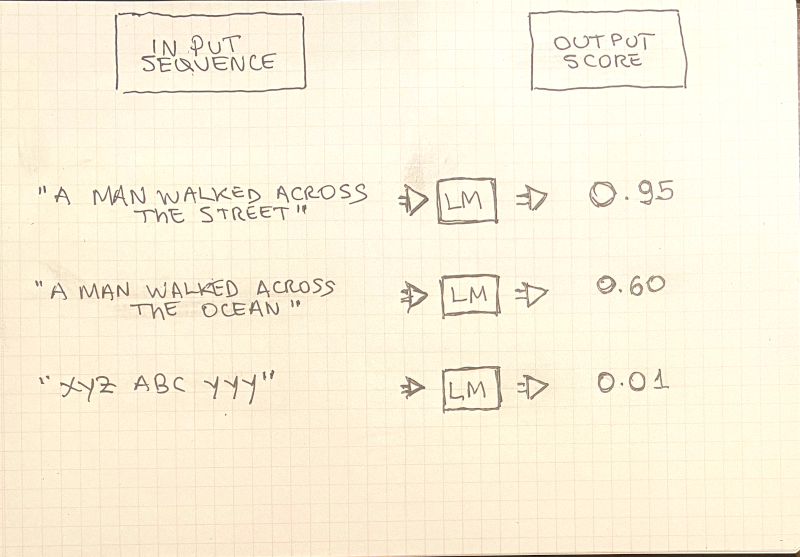 IN PUT
SEQUENCE
OUTPUT
SCORE
"A MAN WALKED ACROSS
THE STREET"
LM
0.95
"A MAN WALKED ACROSS
THE OCEAN"
LM
0.60
"XYZ ABC YYY"
LM
0.01